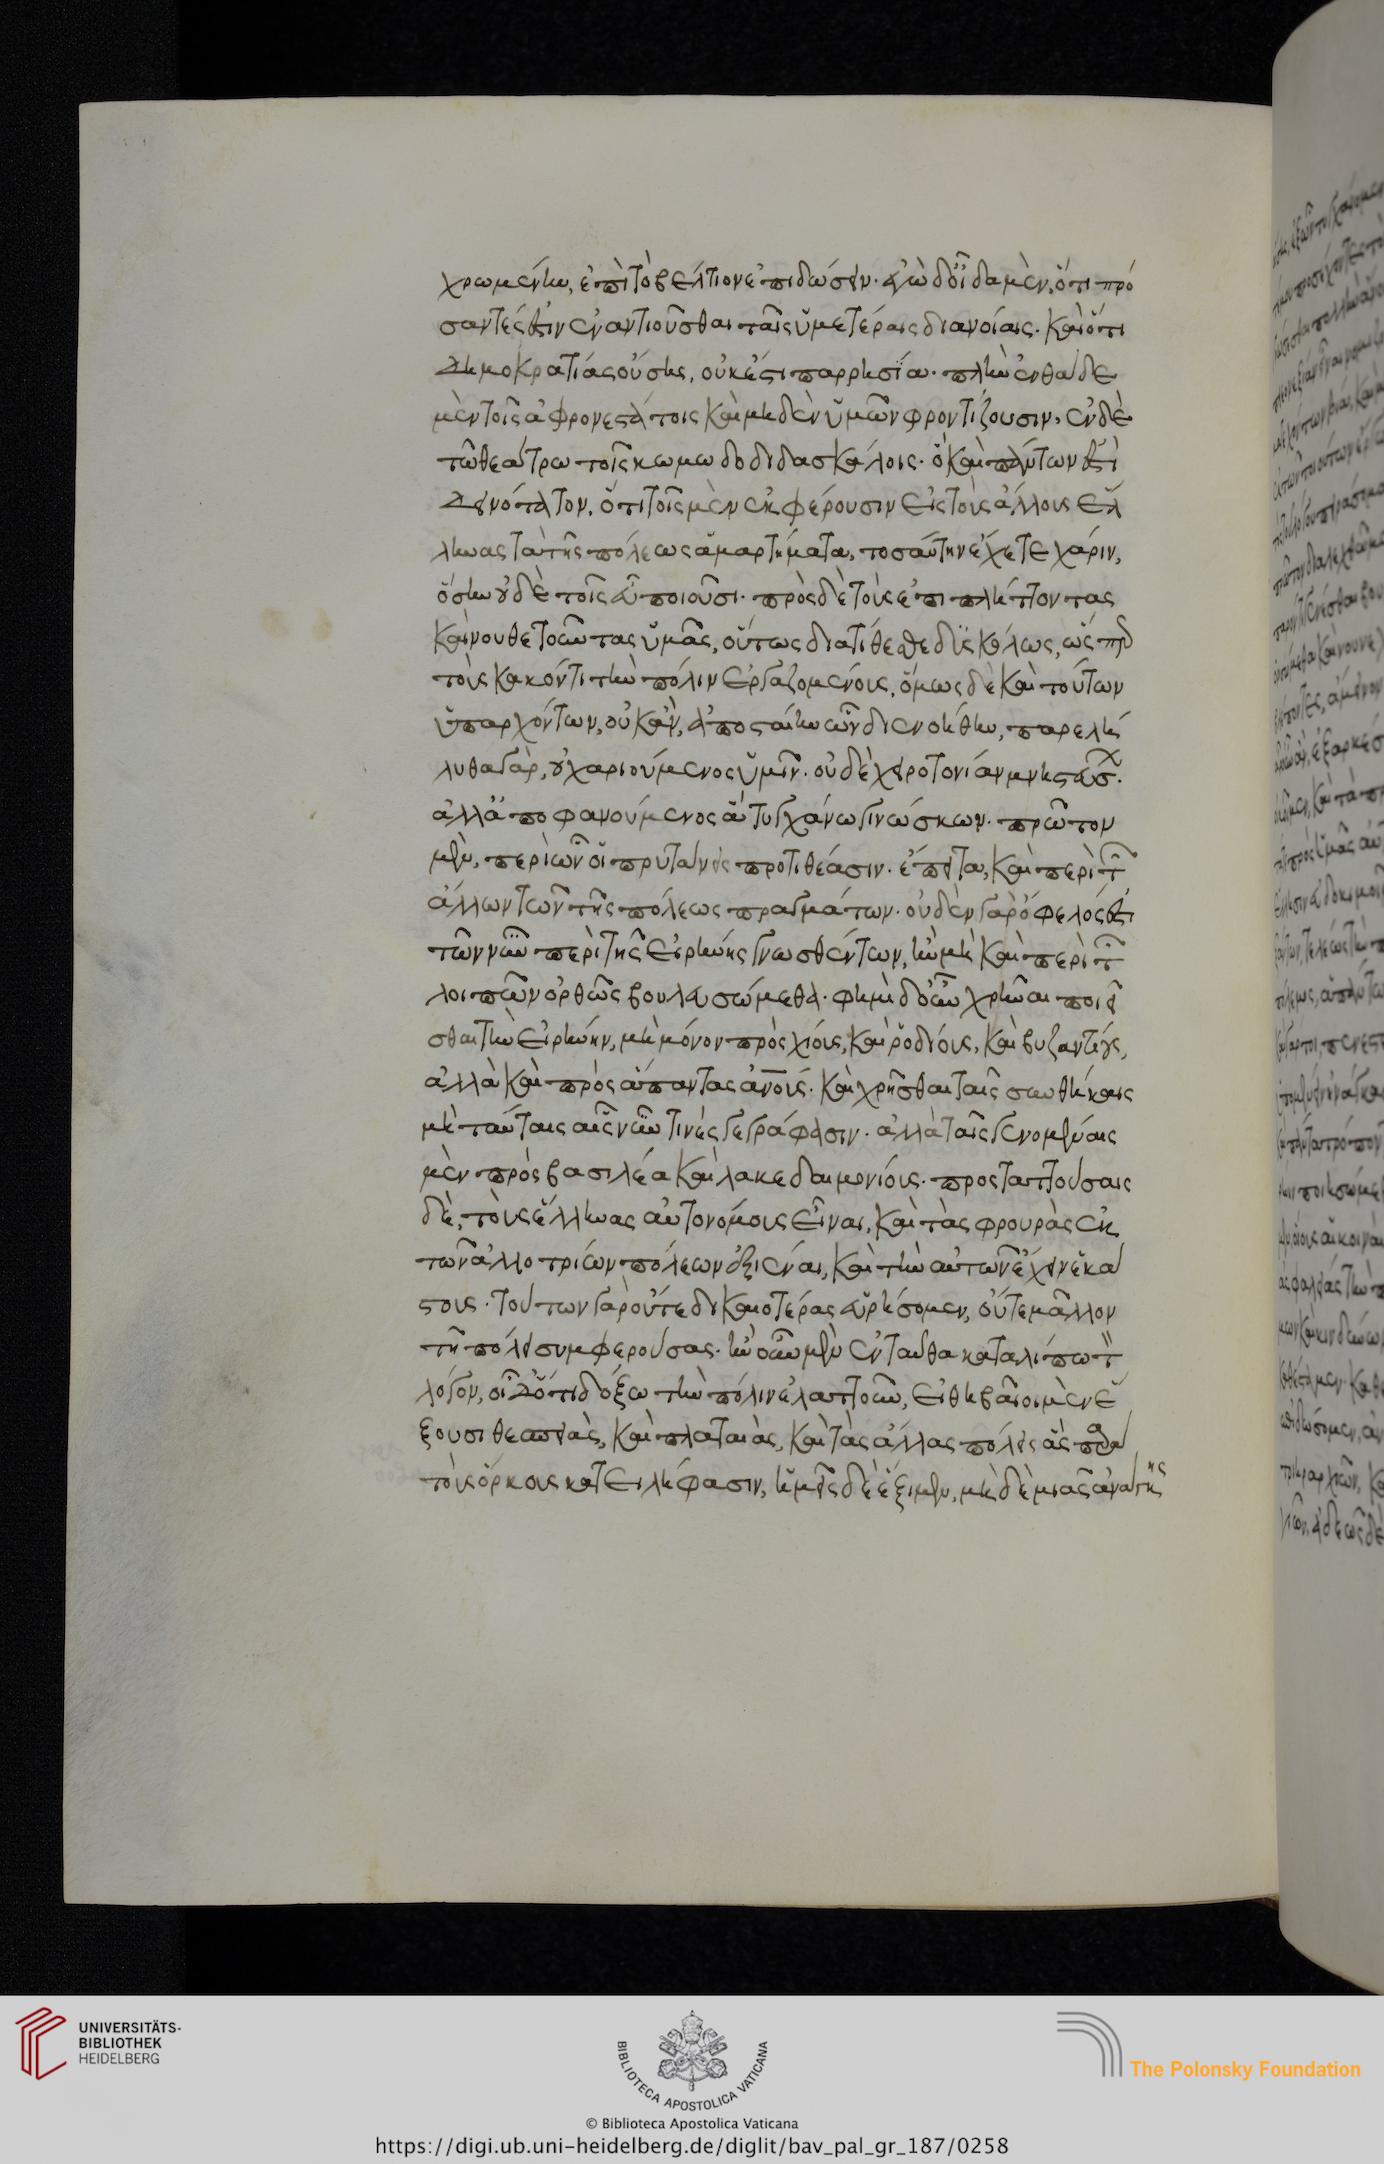 χρωμένην, ἐπὶ τὸ βέλτιον ἐπιδώσειν. ἐγὼ δ' οἶδα μὲν, ὅτι πρό
σαντές ἐστιν ἐναντιοῦσθαι ταῖς ὑμετέραις διανοίαις. καὶ ὅτι
δημοκρατίας οὔσης, οὐκ ἔστι παρρησία. πλὴν ἐνθάδε
μὲν τοῖς ἀφρονεστάτοις καὶ μηδὲν ὑμῶν φροντίζουσιν, ἐν δὲ
τῶ θεάτρω τοῖς κωμωδοδιδασκάλοις. ὃ καὶ πάντων ἐστὶ
δεινότατον, ὅτι τοῖς μὲν ἐκφέρουσιν εἰς τοὺς ἄλλους ἕλ
ληνας τὰ τῆς πόλεως ἁμαρτήματα, τοσαύτην ἔχετε χάριν,
ὅσην οὐδὲ τοῖς εὖ ποιοῦσι. πρὸς δὲ τοὺς ἐπιπλήττοντας
καὶ νουθετοῦντας ὑμᾶς, οὕτως διατίθεσθε δυσκόλως, ὥσπερ
τοὺς κακόν τι τὴν πόλιν ἐργαζομένους, ὅμως δὲ καὶ τούτων
ὑπαρχόντων, οὐκ ἂν, ἀποσταίην ὧν διενοήθην, παρελή
λυθα γὰρ, οὐ χαριούμενος ὑμῖν. οὐδὲ χειροτονίαν μνηστεύσ.
ἀλλ' ἀποφανούμενος ἃ τυγχάνω γινώσκων. πρῶτον
μὲν, περὶ ὧν οἱ πρυτάνεις προτιθέασιν. ἔπειτα, καὶ περὶ τ
ἄλλων τῶν τῆς πόλεως πραγμάτων. οὐδὲν γὰρ ὄφελός ἐστι
τῶν νῦν περὶ τῆς εἰρήνης γνωσθέντων, ἢν μὴ καὶ περὶ τ
λοιπῶν ὀρθῶς βουλευσώμεθα. φημὶ δ' οὖν χρῆναι ποιεῖ
σθαι τὴν εἰρήνην, μὴ μόνον πρὸς χίους, καὶ ῥοδίους, καὶ βυζαντίους,
ἀλλὰ καὶ πρὸς ἅπαντας ἀνους. καὶ χρῆσθαι ταῖς συνθήκαις
μὴ ταύταις αἷς νῦν τινὲς γεγράφασιν. ἀλλὰ ταῖς γενομέναις
μὲν πρὸς βασιλέα καὶ λακεδαιμονίους. προσταττούσαις
δὲ, τοὺς ἕλληνας αὐτονόμους εἶναι, καὶ τὰς φρουρὰς ἐκ
τῶν ἀλλοτρίων πόλεων ἐξιέναι, καὶ τὴν αὐτῶν ἔχειν ἑκά
στους. τούτων γὰρ οὔτε δικαιοτέρας εὑρήσομεν, οὔτε μᾶλλον
τῆ πόλει συμφερούσας. ἢν οὖν μὲν ἐνταῦθα καταλίπω τ
λόγον, οἶδ' ὅτι δόξω τὴν πόλιν ἐλαττοῦν, εἰ θηβαῖοι μὲν ἕ
ξουσι θεσπιὰς, καὶ πλαταιὰς, καὶ τὰς ἄλλας πόλεις ἃς παρὰ
τοὺς ὅρκους κατειλήφασιν, ἡμεῖς δὲ ἔξιμεν, μηδὲ μιᾶς ἀνάγκης
UNIVERSITÄTS-
BIBLIOTHEK
HEIDELBERG
BIBLIOTECA APOSTOLICA VATICANA
The Polonsky Foundation
© Biblioteca Apostolica Vaticana
https://digi.ub.uni-heidelberg.de/diglit/bav_pal_gr_187/0258